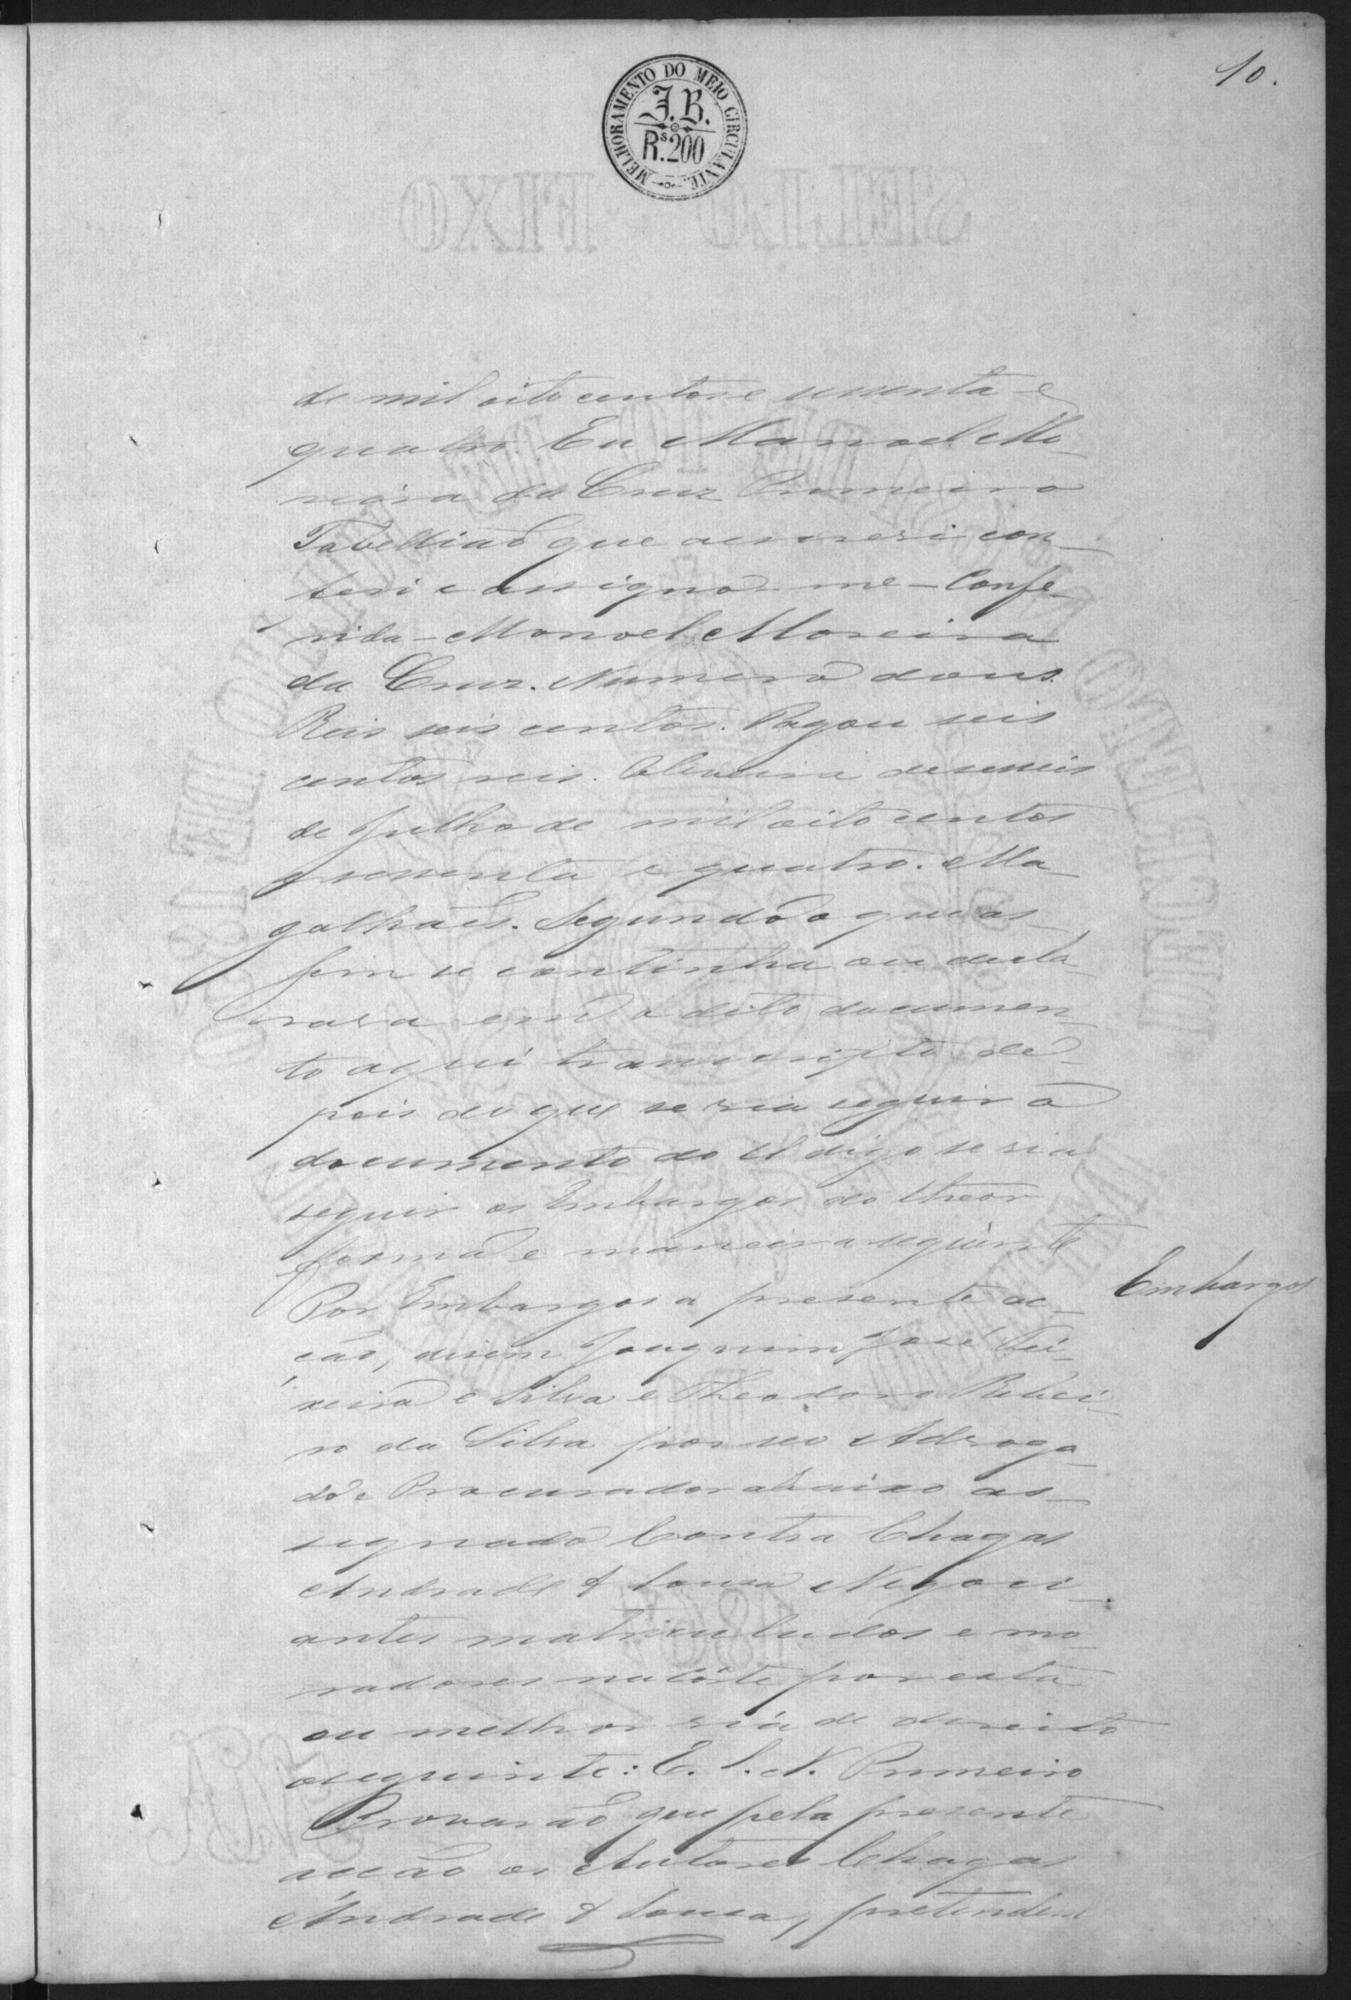 10.
MELHORAMENTO DO MEIO CIRCULANTE
J.B.
Rs.200
SELLO FIXO
de mil oito centos e sessenta e
quatro. Eu Manoel Mo-
reira da Cruz Primeiro
Tabellião que escrevi con-
feri e assigno-me - Confe-
rida - Manoel Moreira
da Cruz. Numero dous
Reis seis centos. Pagou seis
centos reis. Oliveira deseseis
de Julho de mil oito centos
sessenta e quatro. Ma-
galhães. Segundo o que as-
sim se continha ou decla-
rava em o dito documen-
to aqui transcripto de-
pois do que se via seguir o
documento do digo se via
seguir os Embargos do theor
forma e maneira seguinte
Embargos
Por Embargos a presente ac-
cão, disem Joaquim José Tei-
xeira e Silva e Theodoro Ribei-
ro da Silva por seo Advoga-
do e Procurador abaixo as-
signado Contra Chagas
Andrade & Sousa Negoci-
antes matriculados e mo-
radores na Côrte por esta
ou melhor via de direito
o seguinte: E. S. N. Primeiro
Provarão que pela presente
accão os Autores Chagas
Andrade & Sousa, pretendem
1864